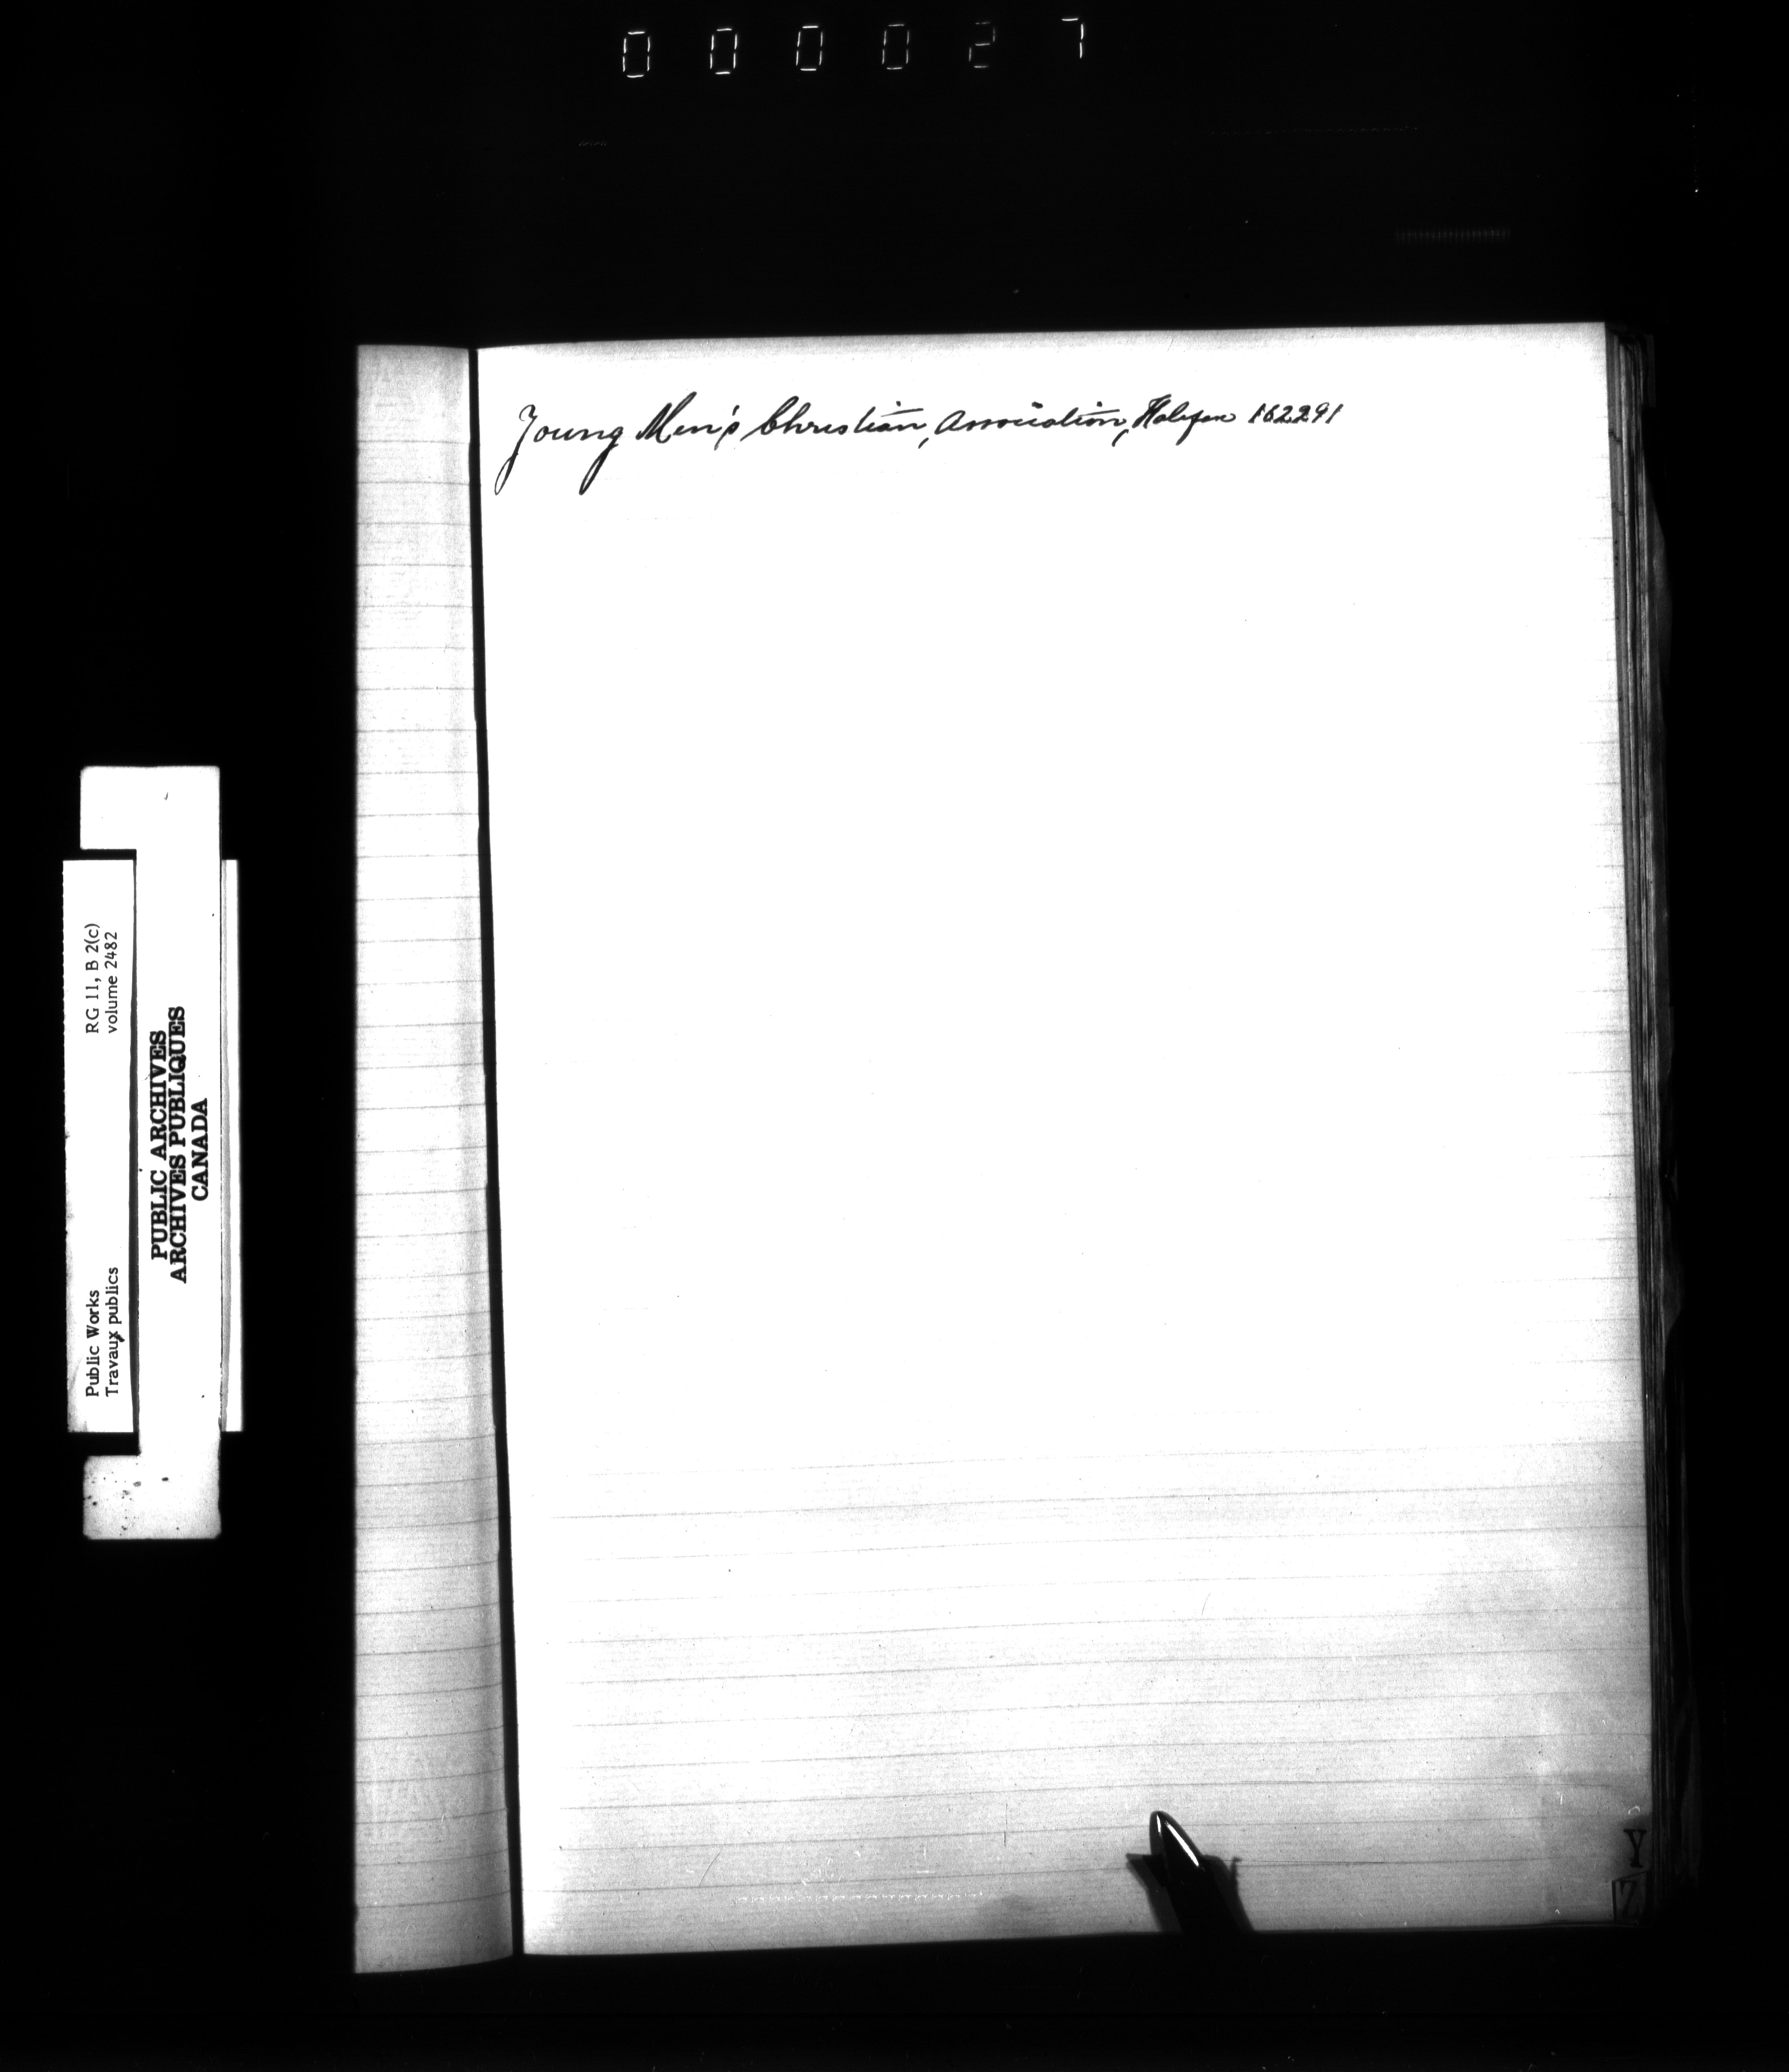 000027
Young Men's Christian, Association, Halifax 162291
RG 11, B 2(c)
volume 2482
Public Works
Travaux publics
PUBLIC ARCHIVES
ARCHIVES PUBLIQUES
CANADA
Y
Z